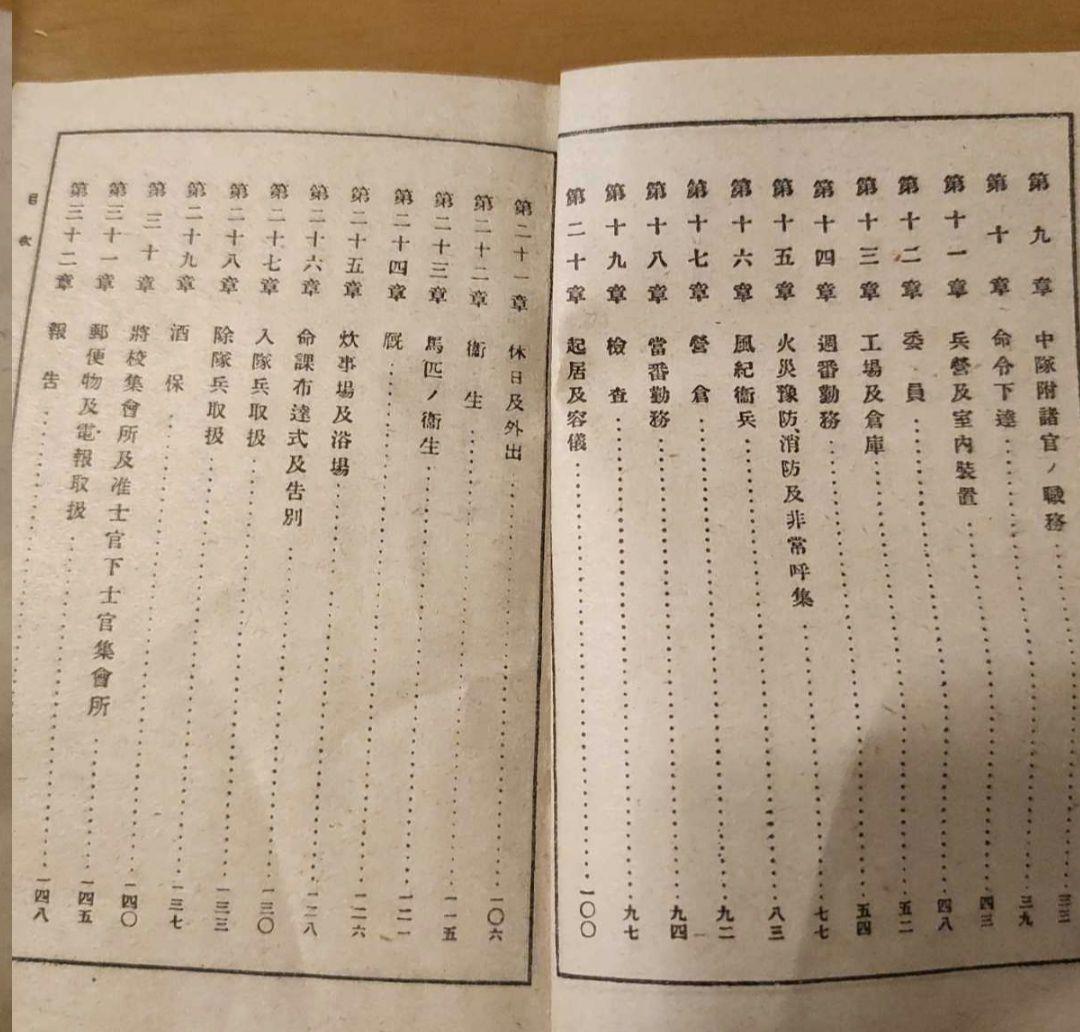 第九章 中隊附諸官ノ職務 三三
第十章 命令下達 三九
第十一章 兵營及室內裝置 四三
第十二章 委員 四八
第十三章 工場及倉庫 五二
第十四章 週番勤務 五四
第十五章 火災豫防、消防及非常呼集 七七
第十六章 風紀衞兵 八三
第十七章 營倉 九二
第十八章 當番勤務 九四
第十九章 檢查 九七
第二十章 起居及容儀 一〇〇
第二十一章 休日及外出 一〇六
第二十二章 衞生 一一五
第二十三章 馬匹ノ衞生
第二十四章 厩 一二一
第二十五章 炊事場及浴場 一二六
第二十六章 命課布達式及告別 一二八
第二十七章 入隊兵取扱 一三〇
第二十八章 除隊兵取扱 一三三
第二十九章 酒保 一三七
第三十章 將校集會所及准士官下士官集會所 一四〇
第三十一章 郵便物及電報取扱 一四五
第三十二章 報告 一四八
目次